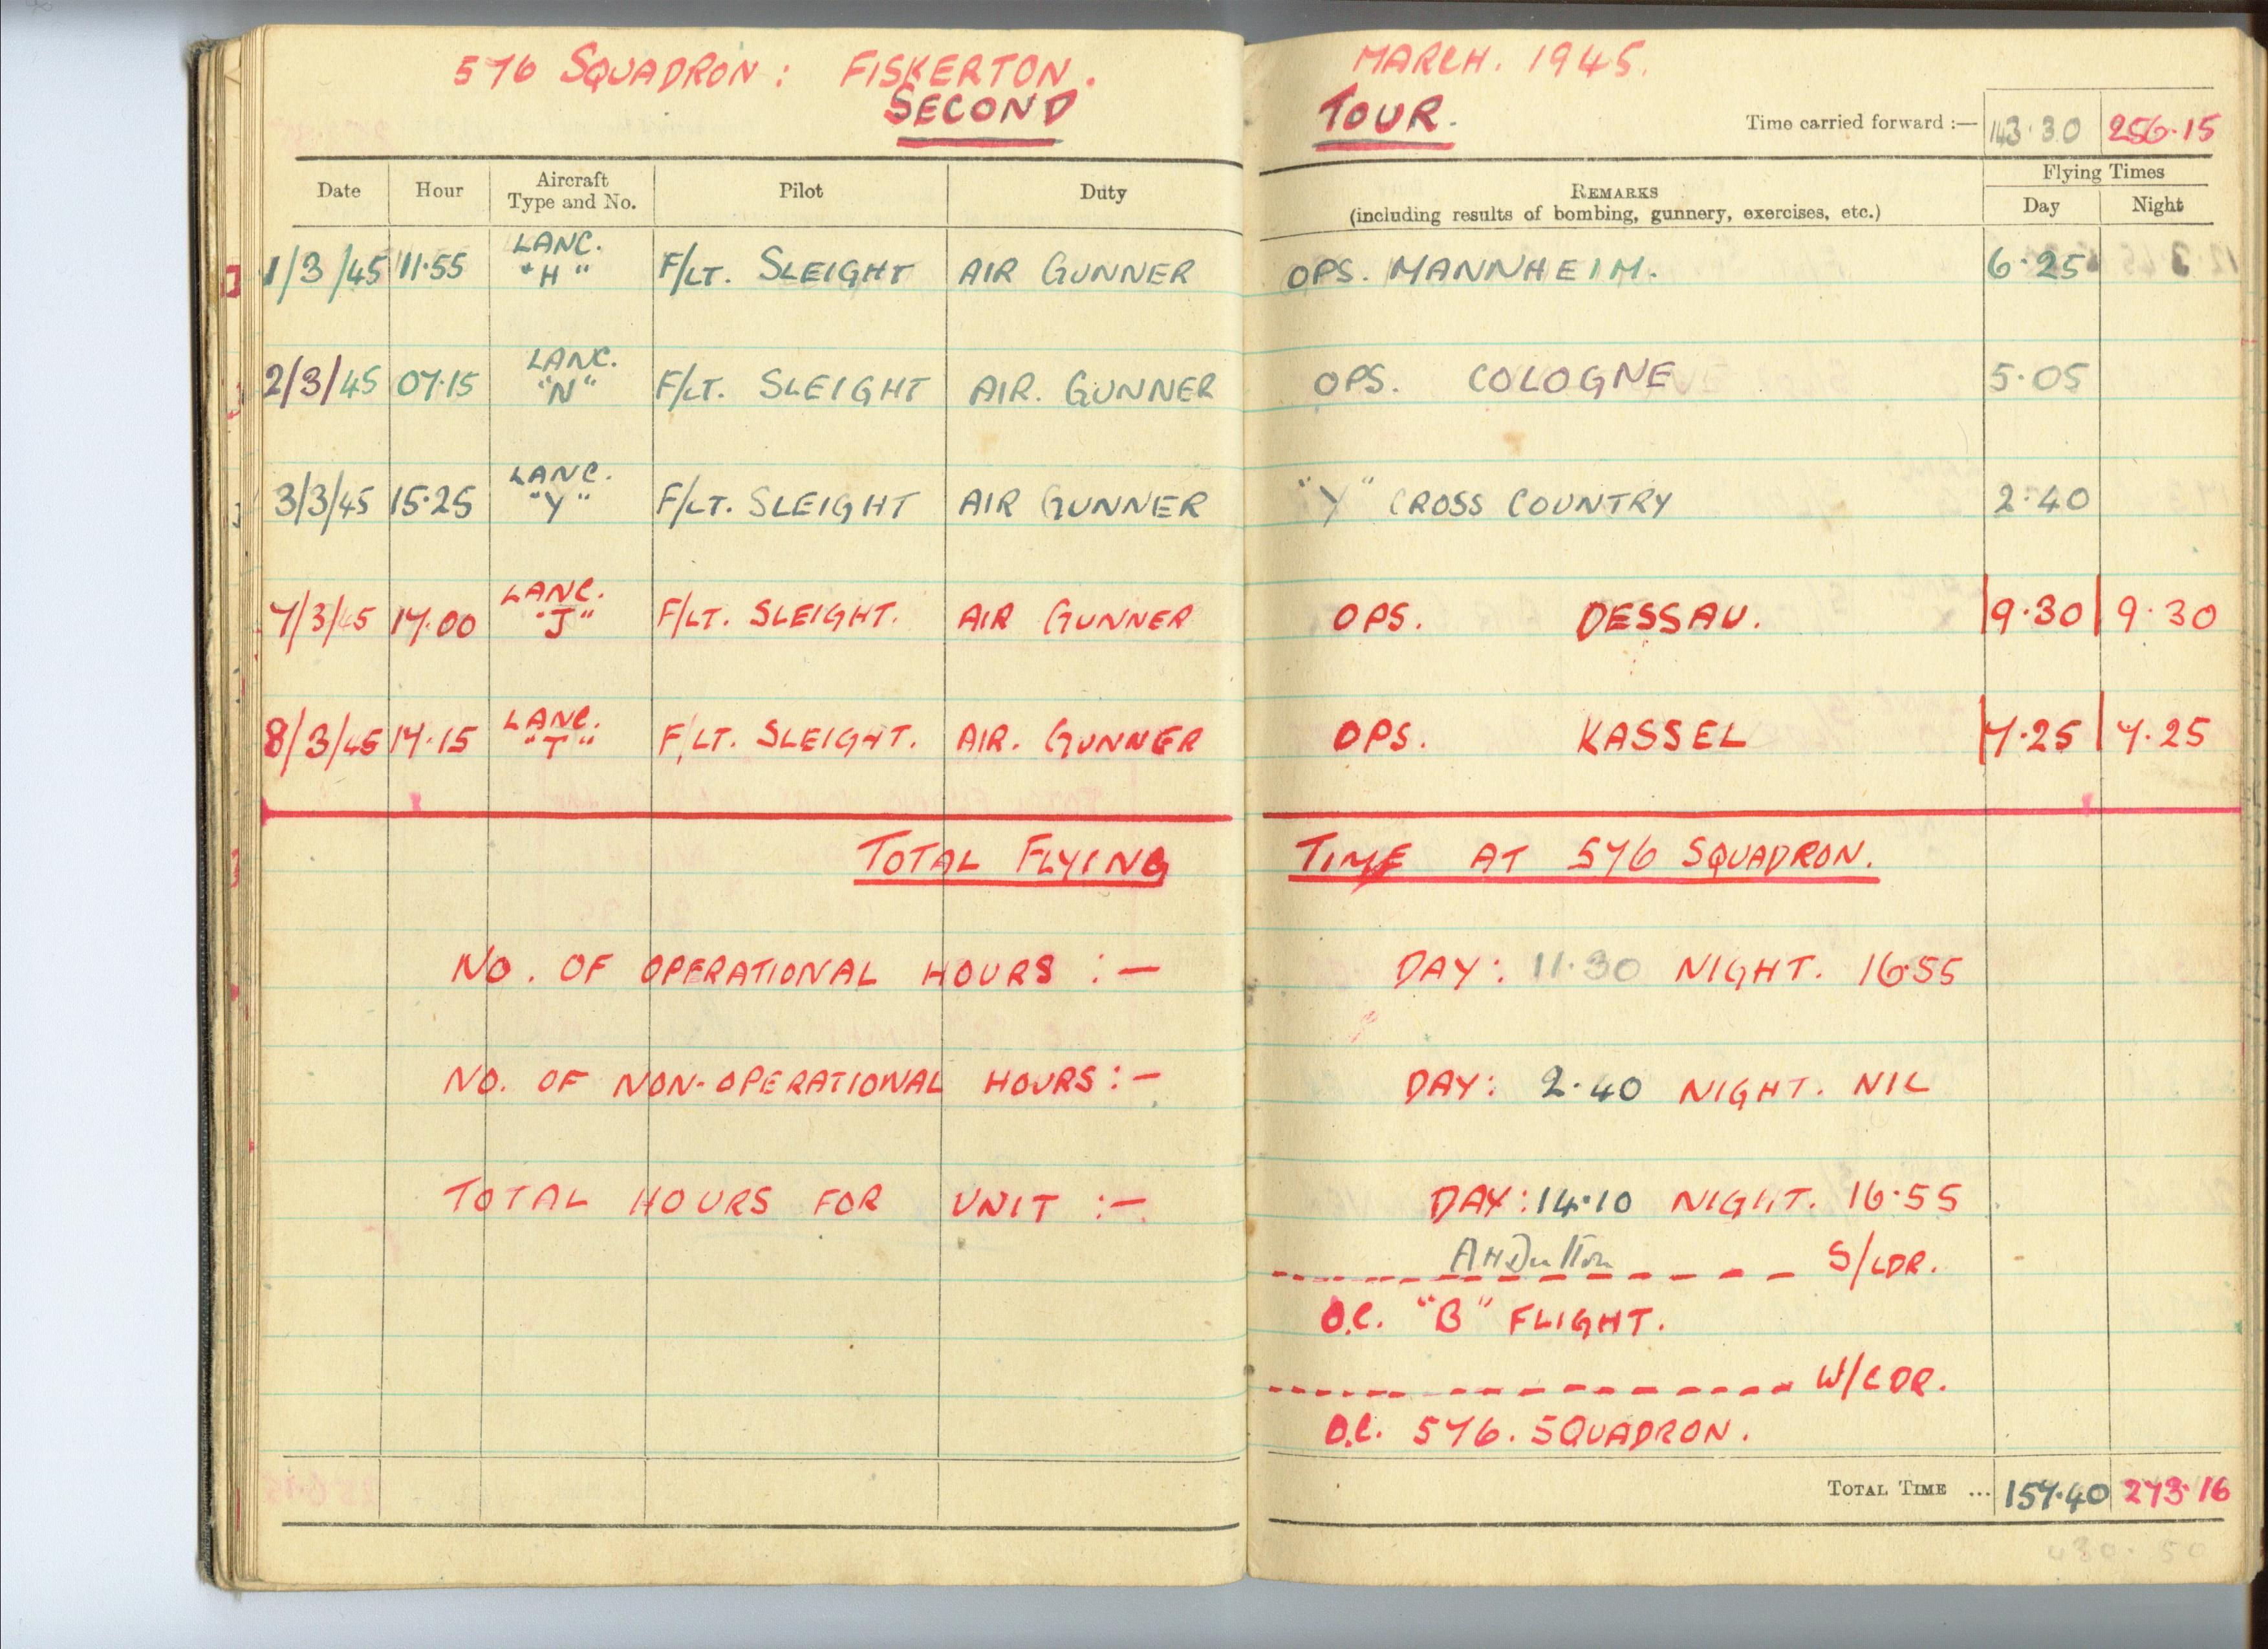 576 SQUADRON: FISKERTON. MARCH. 1945.
SECOND TOUR.
Time carried forward :— 143·30 256·15
Date Hour Aircraft Type and No. Pilot Duty REMARKS (including results of bombing, gunnery, exercises, etc.) Flying Times Day Night
1/3/45 11·55 LANC. "H" F/LT. SLEIGHT AIR GUNNER OPS. MANNHEIM. 6·25
2/3/45 07·15 LANC. "N" F/LT. SLEIGHT AIR. GUNNER OPS. COLOGNE 5·05
3/3/45 15·25 LANC. "Y" F/LT. SLEIGHT AIR GUNNER "Y" CROSS COUNTRY 2·40
7/3/45 17·00 LANC. "J" F/LT. SLEIGHT. AIR GUNNER OPS. DESSAU. 9·30 9·30
8/3/45 17·15 LANC. "T" F/LT. SLEIGHT. AIR. GUNNER OPS. KASSEL 7·25 7·25
TOTAL FLYING TIME AT 576 SQUADRON.
NO. OF OPERATIONAL HOURS :— DAY: 11·30 NIGHT. 16·55
NO. OF NON-OPERATIONAL HOURS :— DAY: 2·40 NIGHT. NIL
TOTAL HOURS FOR UNIT :— DAY: 14·10 NIGHT. 16·55
AHDutton S/LDR.
O.C. "B" FLIGHT.
W/CDR.
O.C. 576. SQUADRON.
TOTAL TIME ... 157·40 273·16
430·50